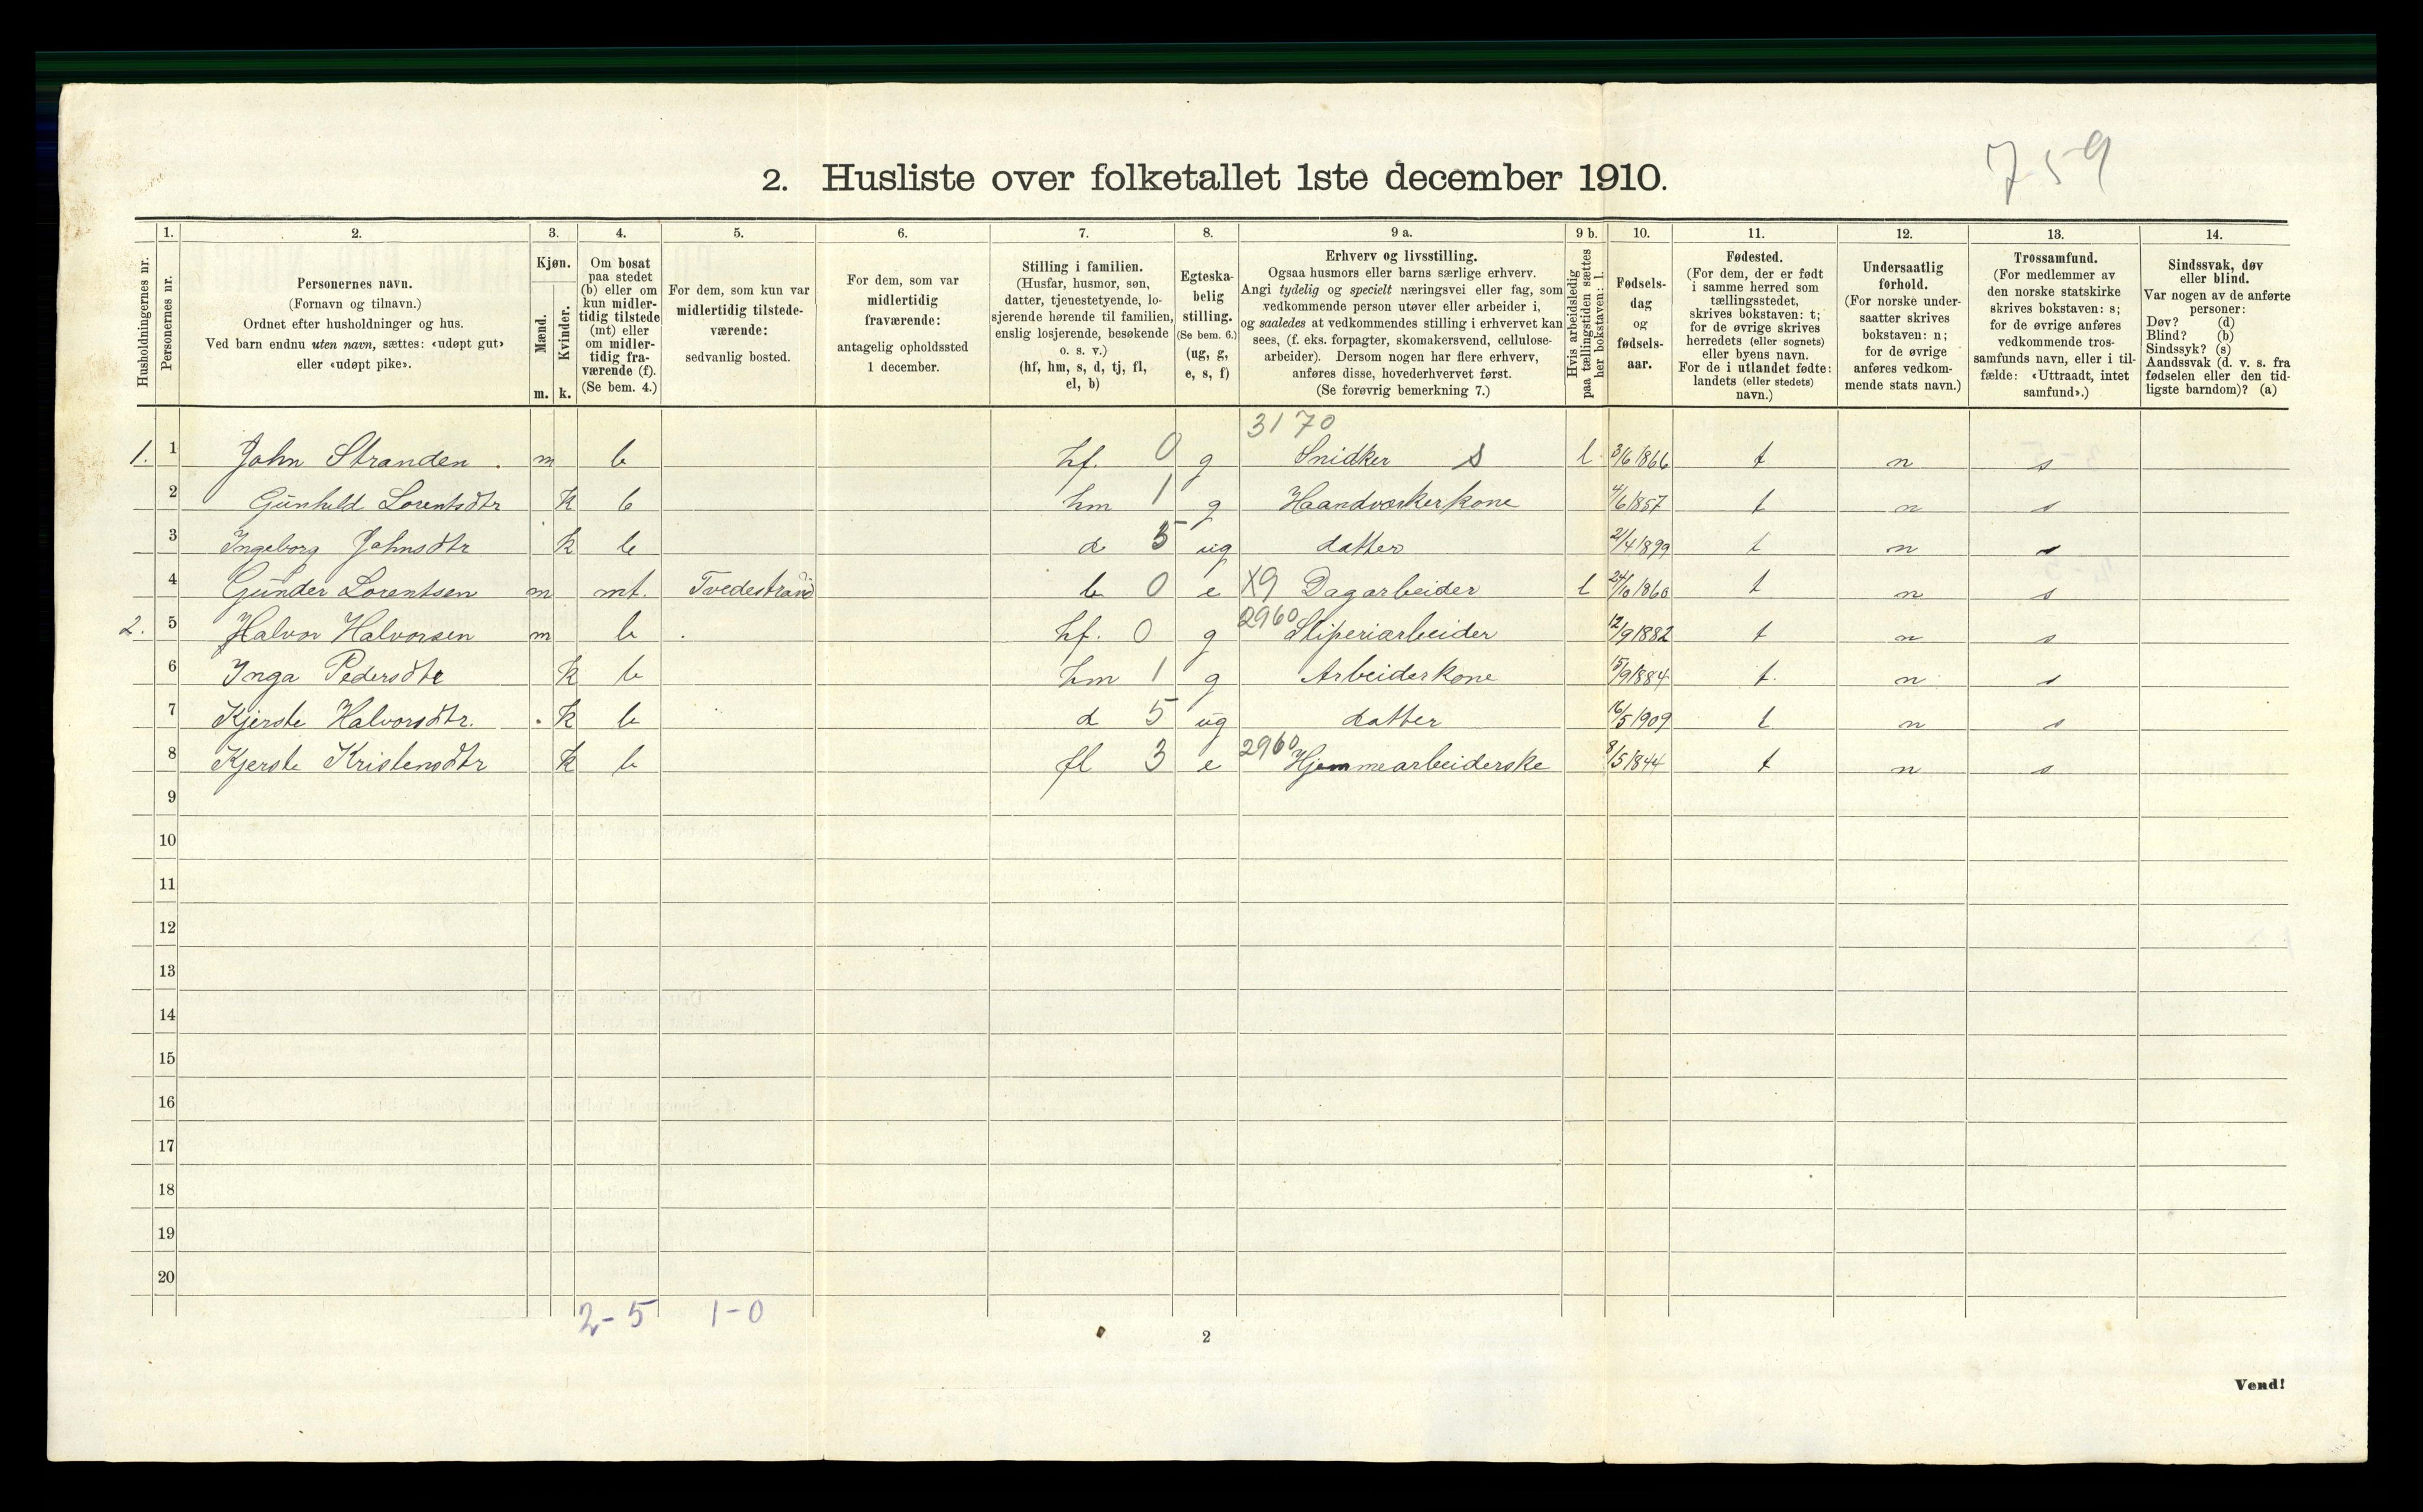 759
2. Husliste over folketallet 1ste december 1910.
Husholdningernes nr.
1.
Personernes nr.
2.
Personernes navn.
(Fornavn og tilnavn.)
Ordnet efter husholdninger og hus.
Ved barn endnu uten navn, sættes: «udøpt gut»
eller «udøpt pike».
3.
Kjøn.
Mænd.
Kvinder.
m. k.
4.
Om bosat
paa stedet
(b) eller om
kun midler-
tidig tilstede
(mt) eller
om midler-
tidig fra-
værende (f).
(Se bem. 4.)
5.
For dem, som kun var
midlertidig tilstede-
værende:
sedvanlig bosted.
6.
For dem, som var
midlertidig
fraværende:
antagelig opholdssted
1 december.
7.
Stilling i familien.
(Husfar, husmor, søn,
datter, tjenestetyende, lo-
sjerende hørende til familien,
enslig losjerende, besøkende
o. s. v.)
(hf, hm, s, d, tj, fl,
el, b)
8.
Egteska-
belig
stilling.
(Se bem. 6.)
(ug, g,
e, s, f)
9 a.
Erhverv og livsstilling.
Ogsaa husmors eller barns særlige erhverv.
Angi tydelig og specielt næringsvei eller fag, som
vedkommende person utøver eller arbeider i,
og saaledes at vedkommendes stilling i erhvervet kan
sees, (f. eks. forpagter, skomakersvend, cellulose-
arbeider). Dersom nogen har flere erhverv,
anføres disse, hovederhvervet først.
(Se forøvrig bemerkning 7.)
9 b.
Hvis arbeidsledig
paa tællingstiden sættes
her bokstaven: l.
10.
Fødsels-
dag
og
fødsels-
aar.
11.
Fødested.
(For dem, der er født
i samme herred som
tællingsstedet,
skrives bokstaven: t;
for de øvrige skrives
herredets (eller sognets)
eller byens navn.
For de i utlandet fødte:
landets (eller stedets)
navn.)
12.
Undersaatlig
forhold.
(For norske under-
saatter skrives
bokstaven: n;
for de øvrige
anføres vedkom-
mende stats navn.)
13.
Trossamfund.
(For medlemmer av
den norske statskirke
skrives bokstaven: s;
for de øvrige anføres
vedkommende tros-
samfunds navn, eller i til-
fælde: «Uttraadt, intet
samfund».)
14.
Sindssvak, døv
eller blind.
Var nogen av de anførte
personer:
Døv? (d)
Blind? (b)
Sindssyk? (s)
Aandssvak (d. v. s. fra
fødselen eller den tid-
ligste barndom)? (a)
3170
1. 1 John Stranden. m b hf. 0 g Snidker s l 3/6 1866 t n s
2 Gunhild Lorentsdtr k b hm 1 g Haandværkerkone 4/6 1857 t n s
3 Ingeborg Johnsdtr k b d 5 ug datter 21/4 1899 t n s
4 Gunder Lorentsen m mt. Tvedestrand b 0 e X9 Dagarbeider l 24/10 1860 t n s
2. 5 Halvor Halvorsen m b hf. 0 g 2960 Sliperiarbeider 12/9 1882 t n s
6 Inga Pedersdtr k b hm 1 g Arbeiderkone 15/9 1884 t. n s
7 Kjerste Halvorsdtr. k b d 5 ug datter 16/5 1909 t n s
8 Kjerste Kristensdtr k b fl 3 e 2960 Hjemmearbeiderske 8/5 1844 t n s
9
10
11
12
13
14
15
16
17
18
19
20
2-5 1-0
2
Vend!